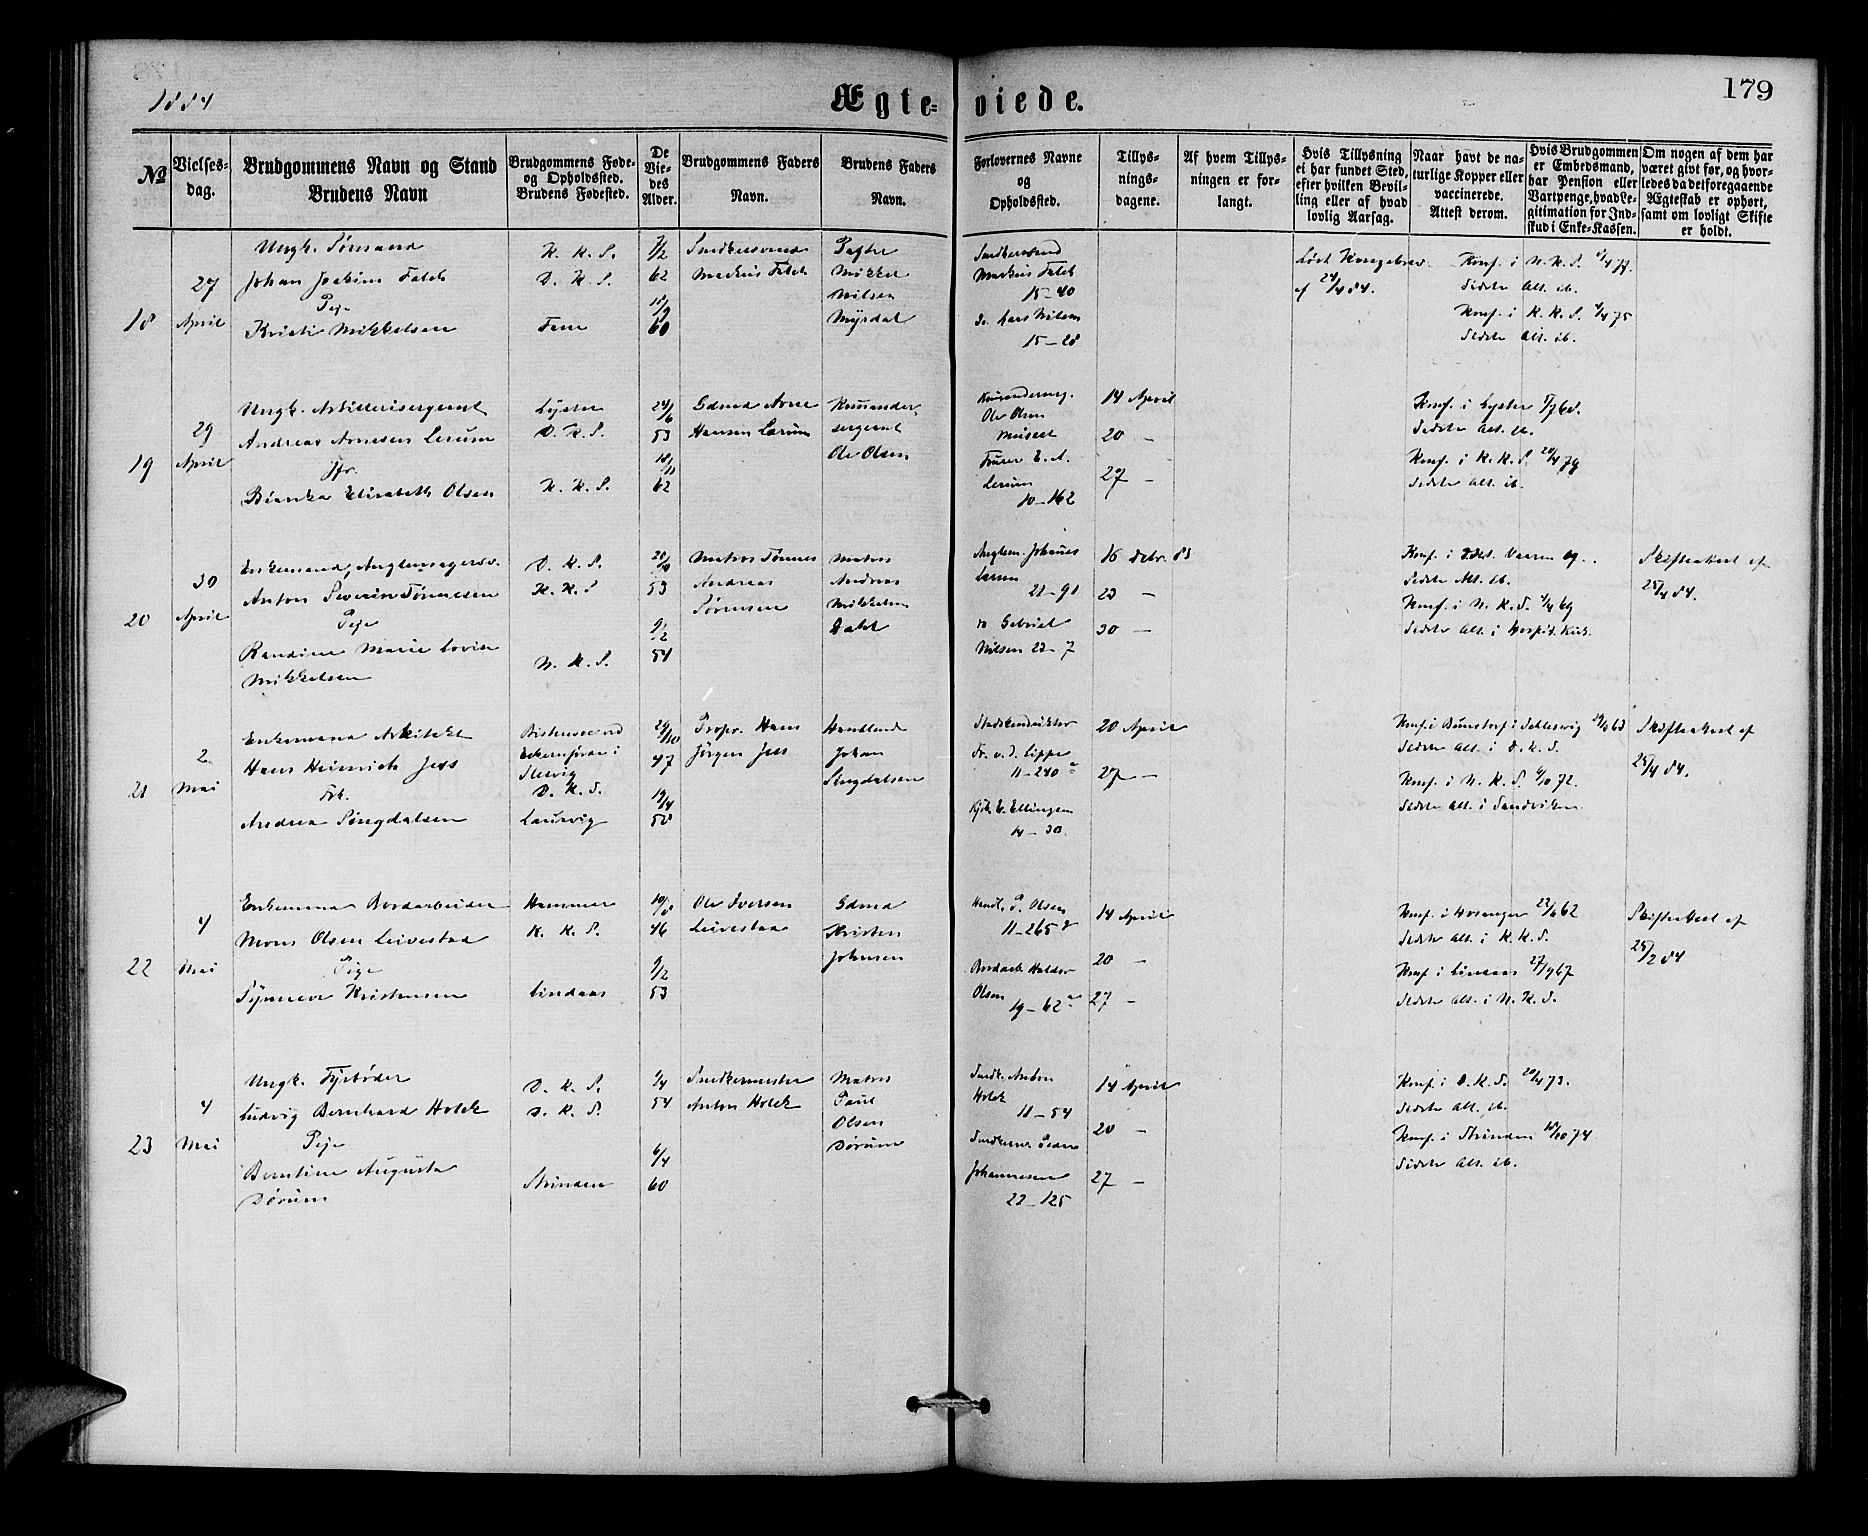 1884
Ægte-viede.
179
No
Vielses-dag.
Brudgommens Navn og Stand
Brudens Navn
Brudgommens Føde-
og Opholdssted.
Brudens Fødested.
De
Vie-
des
Alder.
Brudgommens Faders
Navn.
Brudens Faders
Navn.
Forlovernes Navne
og
Opholdssted.
Tillys-
nings-
dagene.
Af hvem Tillys-
ningen er for-
langt.
Hvis Tillysning
ei har fundet Sted,
efter hvilken Bevil-
ling eller af hvad
lovlig Aarsag.
Naar havt de na-
turlige Kopper eller
vaccinerede.
Attest derom.
Hvis Brudgommen
er Embedsmand,
har Pension eller
Vartpenge, hvad Le-
gitimation for Ind-
skud i Enke-Kassen.
Om nogen af dem har
været givt før, og hvor-
ledes da det foregaaende
Ægteskab er ophørt,
samt om lovligt Skifte
er holdt.
18
27
April
Ungk. Sømand
Johan Joakim Falck
Pige
Kristi Mikkelsen
K. K. S.
D. K. S.
Fane
62
60
Snedkersvend
Markus Falck
Mikkel
Nilsen
Myrdal
Snedkersvend
Markus Falck
15-40
do. Lars Nilsen
15-28
Løst Kongebrev
af 24/4 84.
Konf. i N. K. S. 77.
Sidste Alt. ib.
Konf. i K. K. S. 75
Sidste Alt. ib.
19
29
April
Ungk. Artillerisergeant
Andreas Arnesen Lerum
Jfr.
Bianka Elisabeth Olsen
Lyster
D. K. S.
K. K. S.
24/6
53
18/11
62
Gdmd Arne
Hansen Lerum
sergeant
Ole Olsen
Ole Olsen
Museet
Lerum
10-162
14 April
20 -
27 -
Konf. i Lyster 68.
Sidste Alt. ib.
Konf. i K. K. S. 79
Sidste Alt. ib.
20
30
April
Enkemand,
Anton Severin Tønnesen
Pige
Randine Marie Lovise
Mikkelsen
D. K. S.
K. K. S
N. K. S.
53
9/2
54
Matros Tønnes
Andreas
Sørensen
Matros
Andreas
Mikkelsen
Dahl
Johannes
Larsen
21-91
do Gabriel
Nilsen 23-7
16 Debr. 83
23 -
30 -
Sidste Alt. ib.
Konf. i N. K. S. 69
Sidste Alt. i Hospit. Kirk.
Skifteattest af
25/4 84.
21
2
Mai
Enkemand Arkitekt
Hans Heinrich Jess
Frk.
Andrea Songdalsen
Slesvig
D. K. S.
Laurvig
29/10
47
19/4
50
Propr. Hans
Jørgen Jess
Handlende
Johan
Songdalsen
Stadskonduktør
Fr. v. d. Lippe
11-240 a
E. Ellingsen
14-30
20 April
27 -
Konf. i Bunstorf i Schleswig 63
Sidste Alt. i D. K. S.
Konf. i N. K. S. 72.
Sidste Alt. i Sandviken
Skifteattest af
25/4 84.
22
4
Mai
Enkemand Bordarbeider
Mons Olsen Leivestad
Pige
Synneve Kristensen
Hammer
K. K. S.
Lindaas
46
9/2
53
Ole Iversen
Leivestad
Gdmd
Kristen
Johnsen
Handl. P. Olsen
11-265
Bordarb. Haldor
Olsen
19-62 a
14 April
20 -
27 -
Konf. i Hosanger 62
Sidste Alt. i K. K. S.
Konf. i Lindaas 67
Sidste Alt. i N. K. S.
Skifteattest af
25/2 84
23
4
Mai
Ungk. Fyrbøder
Ludvig Bernhard Holck
Pige
Berntine Augusta
Dørum
D. K. S.
D. K. S.
Strinden
54
6/4
60
Snedkermester
Anton Holck
Matros
Paul
Olsen
Dørum
Snedk. Anton
Holck
11-54
Johannesen
22-125
14 April
20 -
27 -
Konf. i D. K. S. 73.
Sidste Alt. ib.
Konf. i Strinden 74
Sidste Alt. ib.